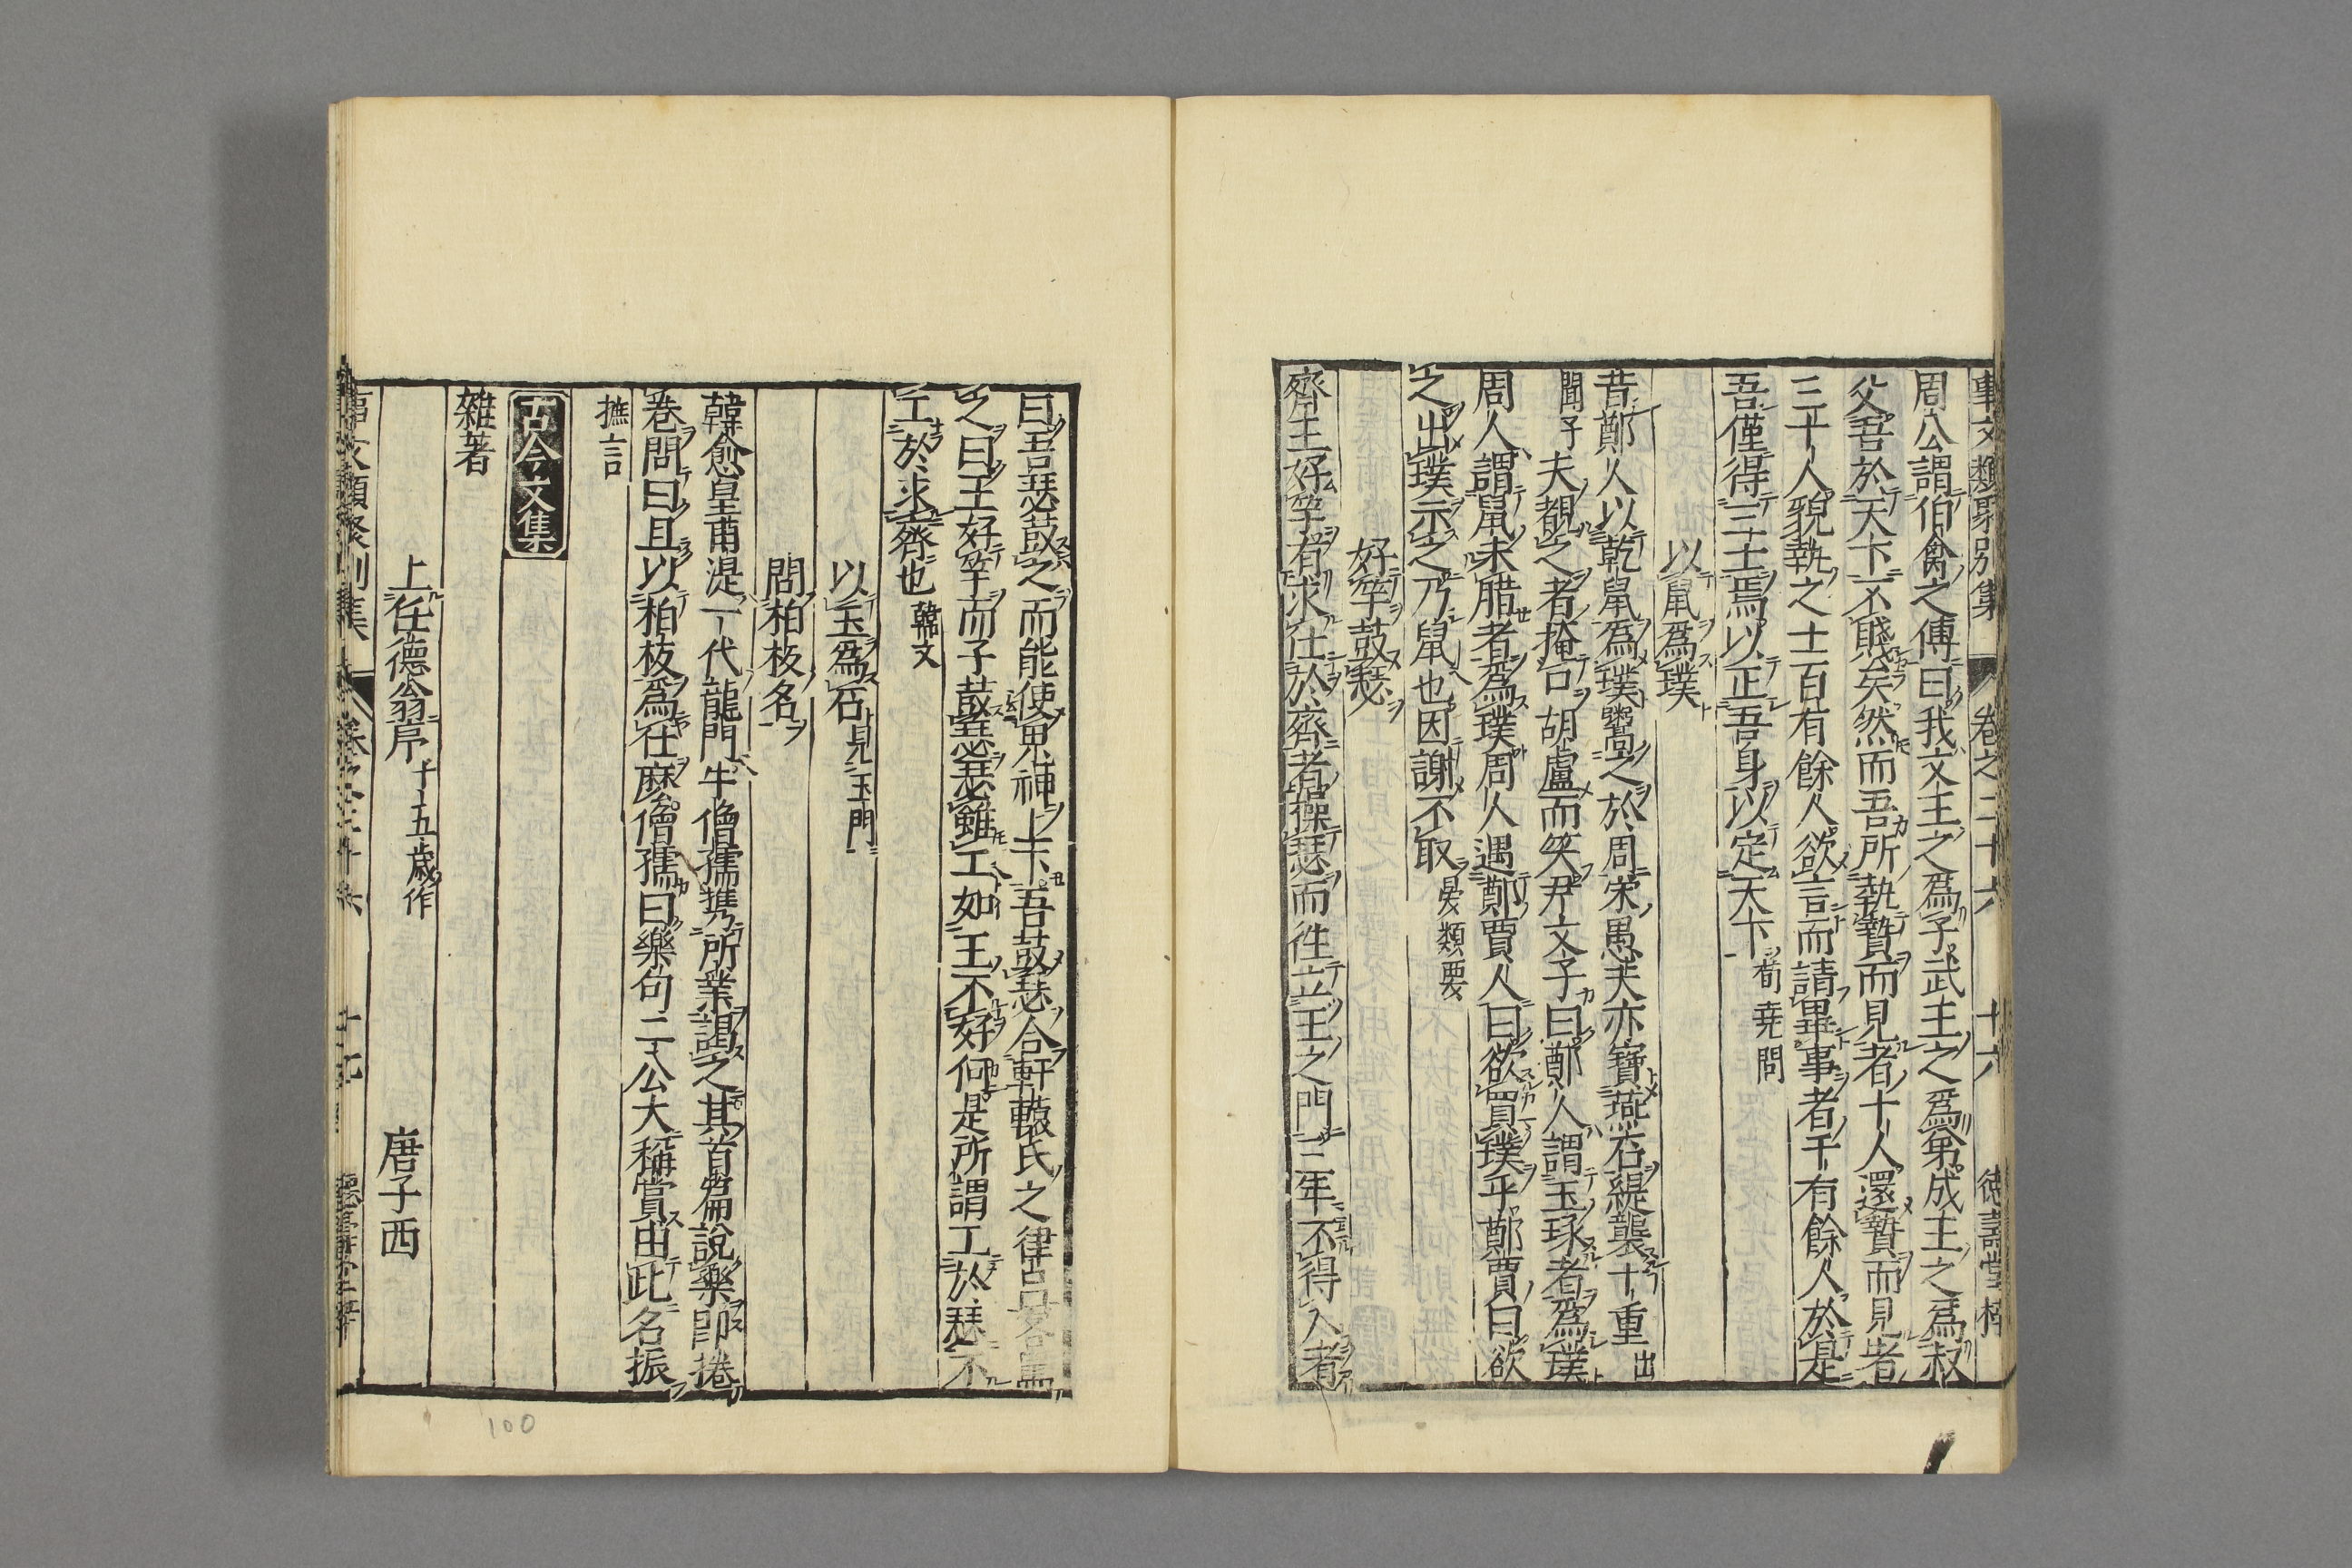 事文類聚別集 卷之二十六 十六 德壽堂梓
周公謂伯禽之傅曰我文王之爲子武王之爲弟成王之爲叔
父吾於天下不賤矣然而吾所執贄而見者十人還贄而見者
三十人貌執之士百有餘人欲言而請畢事者千有餘人於是
吾僅得三士焉以正吾身以定天下荀堯問
以鼠爲璞
昔鄭人以乾鼠爲璞鬻之於周宋愚夫亦寶燕石緹襲十重出
闞子夫覩之者掩口胡盧而笑尹文子曰鄭人謂玉琢者爲璞
周人謂鼠未腊者爲璞周人遇鄭賈人曰欲買璞乎鄭賈曰欲
之出璞示之乃鼠也因謝不取晏類要
好竽鼓瑟
齊王好竽有求仕於齊者操瑟而徃立王之門三年不得入者
曰吾瑟鼓之而能使鬼神上下吾鼓瑟合軒轅氏之律呂客罵
之曰王好竽而子鼓瑟瑟雖工如王不好何是所謂工於瑟不
工於求齊也韓文
以玉爲石見玉門
問柏板名
韓愈皇甫湜一代龍門牛僧孺携所業謁之其首篇說樂卽捲
卷問曰且以柏板爲仕麽僧孺曰樂句二公大稱賞由此名振
摭言
古今文集
雜著
上任德翁序十五歲作 唐子西